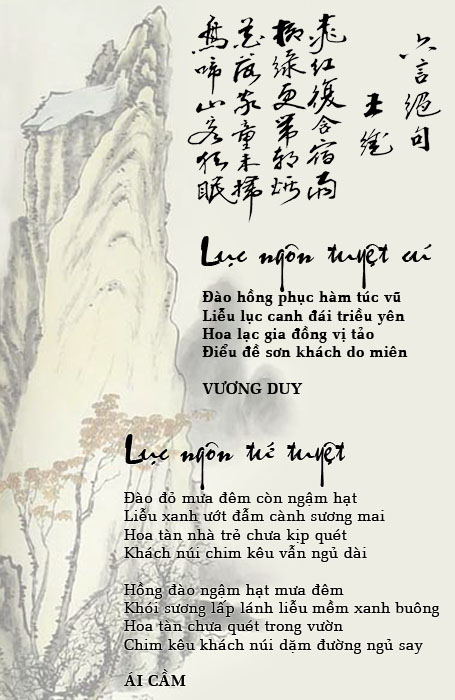 六言絕句
王維
桃紅復含宿雨
柳綠更帶朝烟
花落家童未掃
鳥啼山客猶眠
Lục ngôn tuyệt cú
Đào hồng phục hàm túc vũ
Liễu lục canh đái triều yên
Hoa lạc gia đồng vị tảo
Điểu đề sơn khách do miên
VƯƠNG DUY
Lục ngôn tứ tuyệt
Đào đỏ mưa đêm còn ngậm hạt
Liễu xanh ướt đẫm cành sương mai
Hoa tàn nhà trẻ chưa kịp quét
Khách núi chim kêu vẫn ngủ dài
Hồng đào ngậm hạt mưa đêm
Khói sương lấp lánh liễu mềm xanh buông
Hoa tàn chưa quét trong vườn
Chim kêu khách núi dặm đường ngủ say
ÁI CẦM